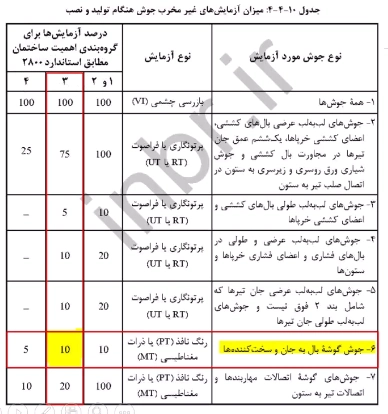 جدول ۱۰-۴-۴: میزان آزمایش‌های غیر مخرب جوش هنگام تولید و نصب
نوع جوش مورد آزمایش
نوع آزمایش
درصد آزمایش‌ها برای
گروه‌بندی اهمیت ساختمان
مطابق استاندارد ۲۸۰۰
۱ و ۲
۳
۴
۱- همهٔ جوش‌ها
بازرسی چشمی (VI)
100
100
100
۲- جوش‌های لب‌به‌لب عرضی بال‌های کششی،
اعضای کششی خرپاها، یک‌ششم عمق جان
تیرها در مجاورت بال کششی و جوش
شیاری ورق روسری و زیرسری به ستون در
اتصال صلب تیر به ستون
پرتونگاری یا فراصوت
(RT یا UT)
100
75
25
۳- جوش‌های لب‌به‌لب طولی بال‌های کششی و
اعضای کششی خرپاها
پرتونگاری یا فراصوت
(RT یا UT)
10
5
–
۴- جوش‌های لب‌به‌لب عرضی و طولی در
بال‌های فشاری و اعضای فشاری خرپاها و
ستون‌ها
پرتونگاری یا فراصوت
(RT یا UT)
20
10
–
۵- جوش‌های لب‌به‌لب عرضی جان تیرها که
شامل بند ۲ فوق نیست و جوش‌های
لب‌به‌لب طولی جان تیرها
پرتونگاری یا فراصوت
(RT یا UT)
20
10
–
۶- جوش گوشهٔ بال به جان و سخت‌کننده‌ها
رنگ نافذ (PT) یا ذرات
مغناطیسی (MT)
10
10
5
۷- جوش‌های گوشهٔ اتصالات مهاربندها و
اتصالات تیر به ستون
رنگ نافذ (PT) یا ذرات
مغناطیسی (MT)
100
20
10
inbr.ir